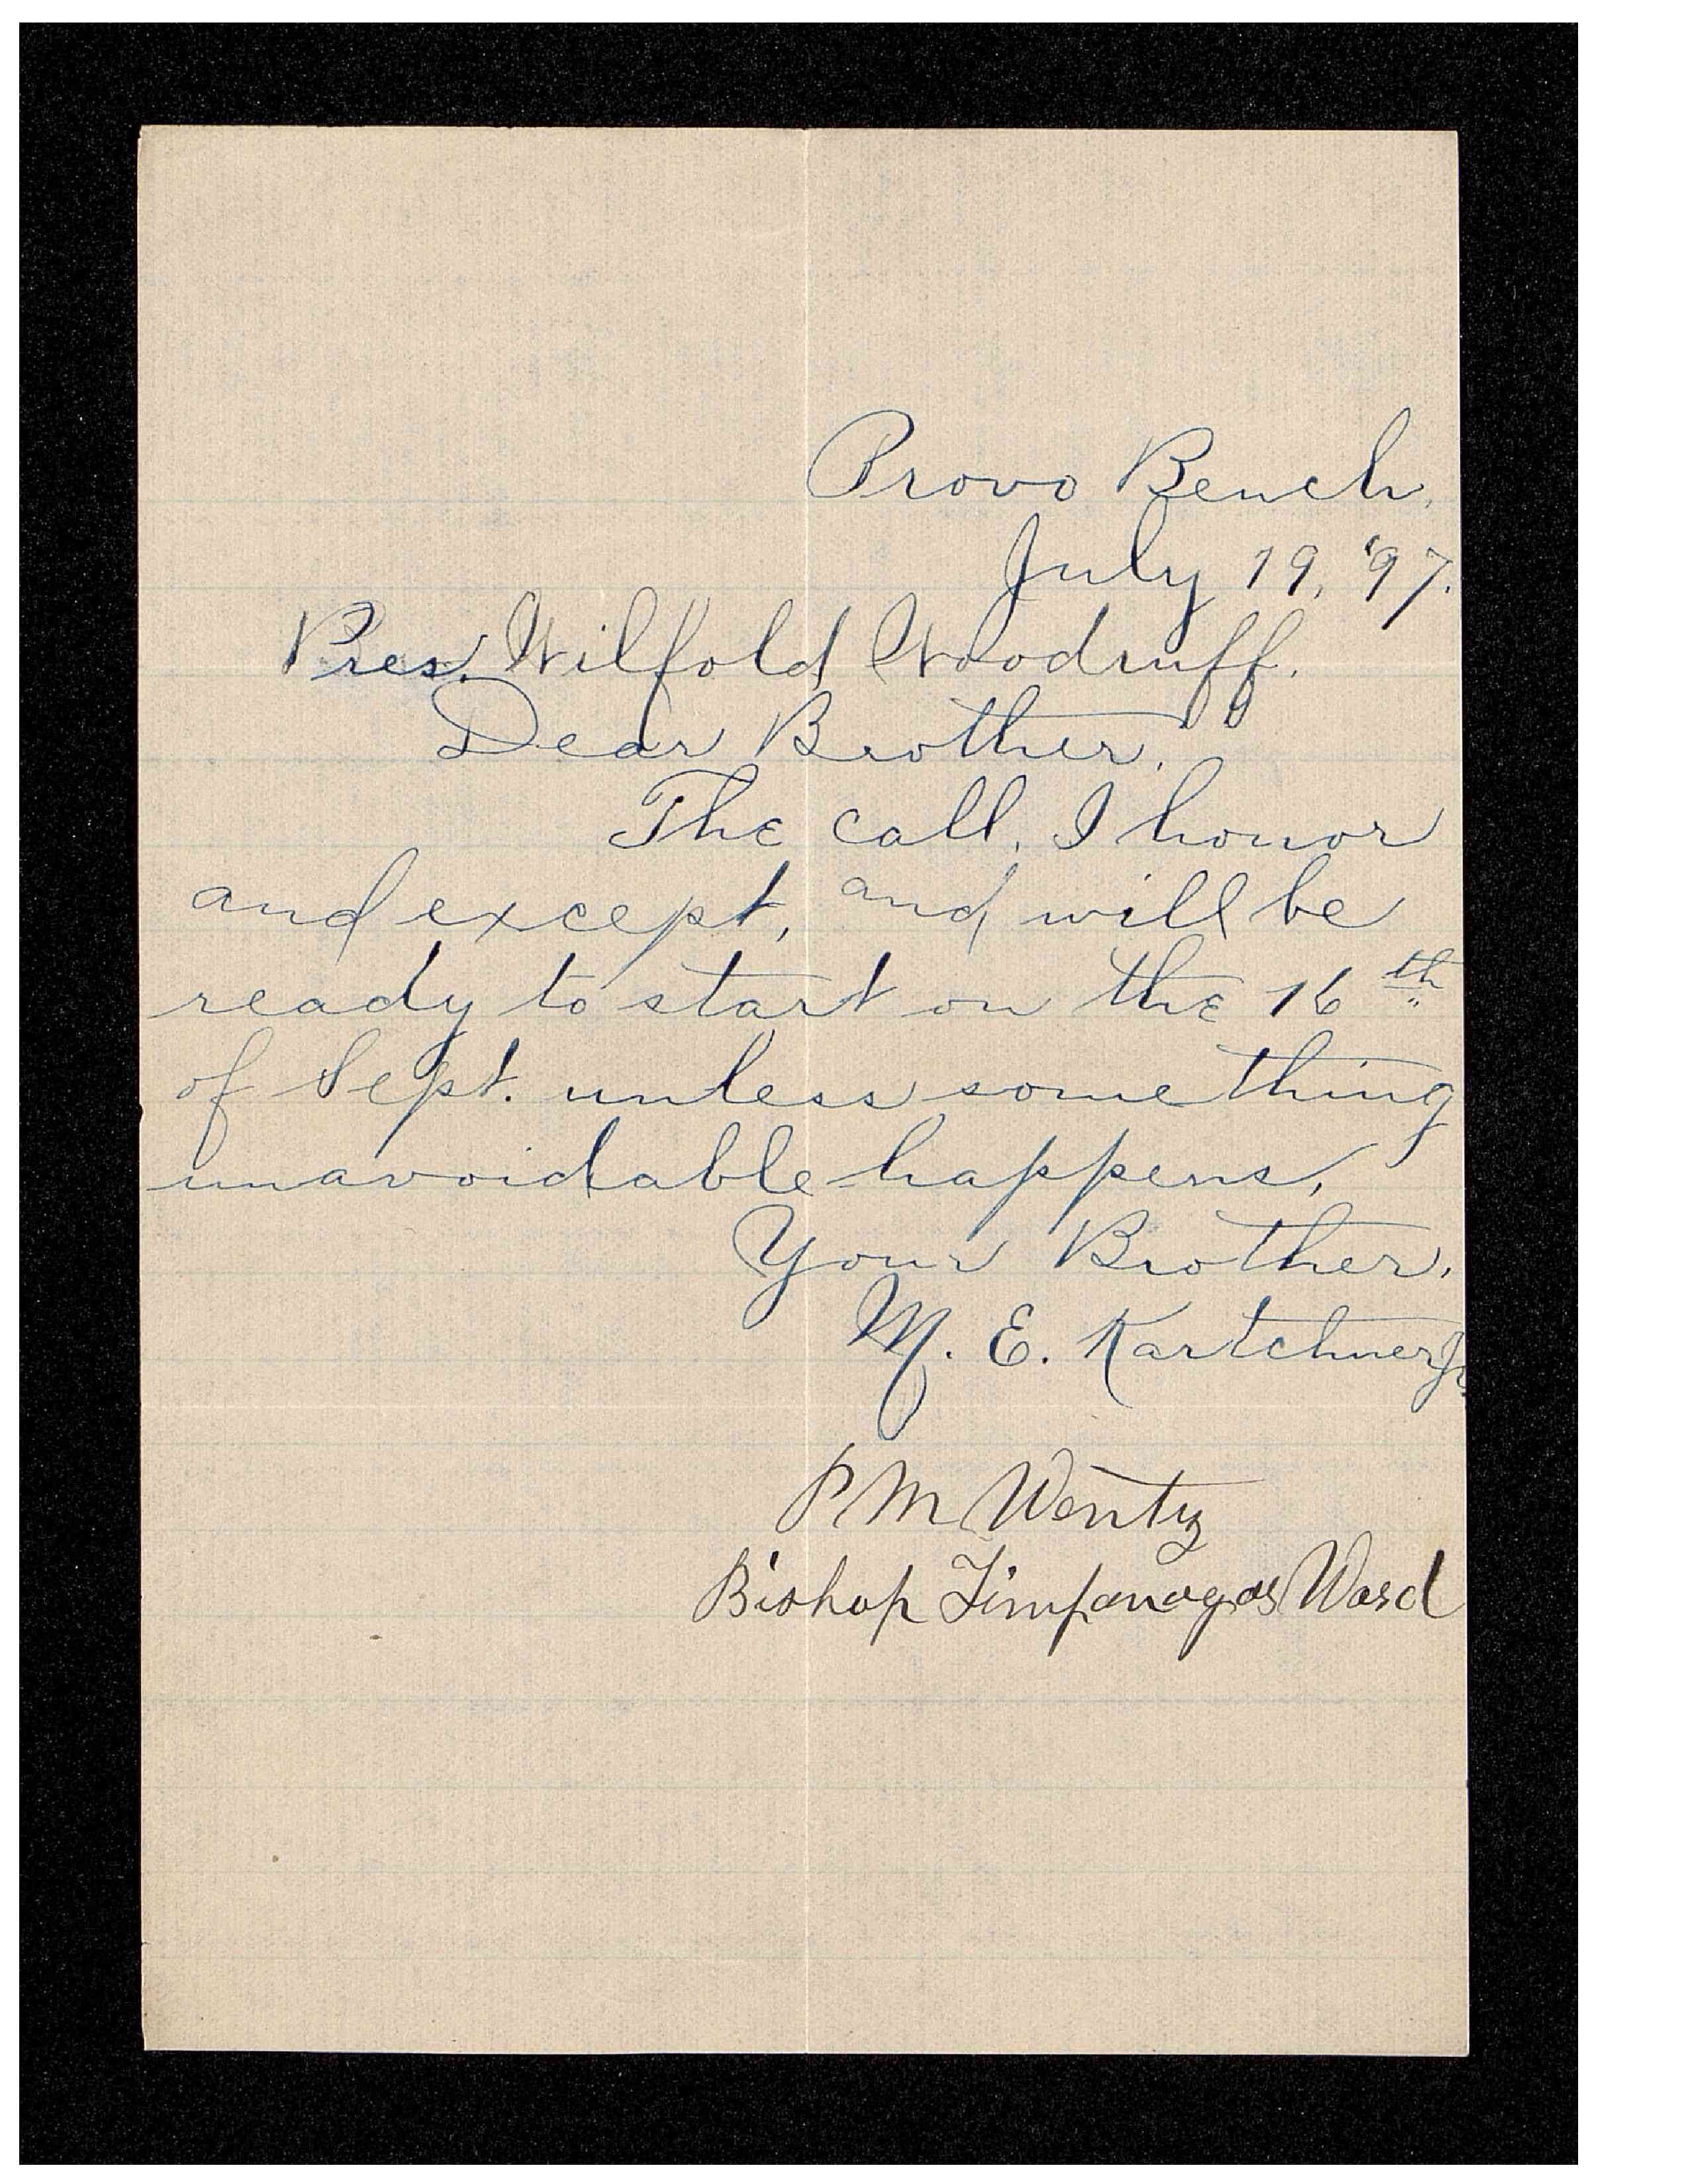 Provo Bench,
July 19, '97.
Pres. Wilfold Woodruff.
Dear Brother,
The call, I honor
and except, and will be
ready to start on the 16th
of Sept. unless something
unavoidable happens,
Your Brother,
M. E. Kartchner Jr.
P M Wentz
Bishop Timpanogas Ward